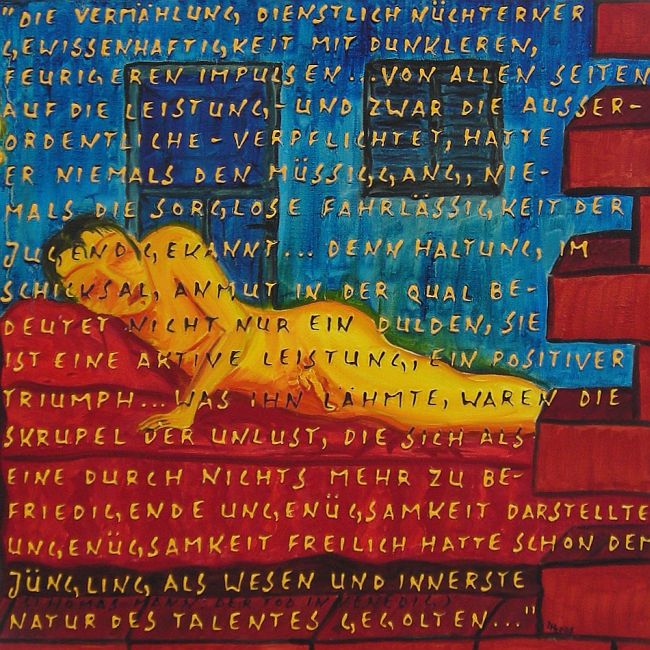 "DIE VERMÄHLUNG, DIENSTLICH NÜCHTERNER
GEWISSENHAFTIGKEIT MIT DUNKLEREN,
FEURIGEREN IMPULSEN...VON ALLEN SEITEN
AUF DIE LEISTUNG,-UND ZWAR DIE AUSSER-
ORDENTLICHE-VERPFLICHTET, HATTE
ER NIEMALS DEN MÜSSIGGANG, NIE-
MALS DIE SORGLOSE FAHRLÄSSIGKEIT DER
JUGEND GEKANNT... DENN HALTUNG, IM
SCHICKSAL, ANMUT IN DER QUAL BE-
DEUTET NICHT NUR EIN DULDEN, SIE
IST EINE AKTIVE LEISTUNG, EIN POSITIVER
TRIUMPH...WAS IHN LÄHMTE, WAREN DIE
SKRUPEL DER UNLUST, DIE SICH ALS
EINE DURCH NICHTS MEHR ZU BE-
FRIEDIGENDE UNGENÜGSAMKEIT DARSTELLTE
UNGENÜGSAMKEIT FREILICH HATTE SCHON DEM
JÜNGLING ALS WESEN UND INNERSTE
(THOMAS MANN: DER TOD IN VENEDIG)
NATUR DES TALENTES GEGOLTEN..."